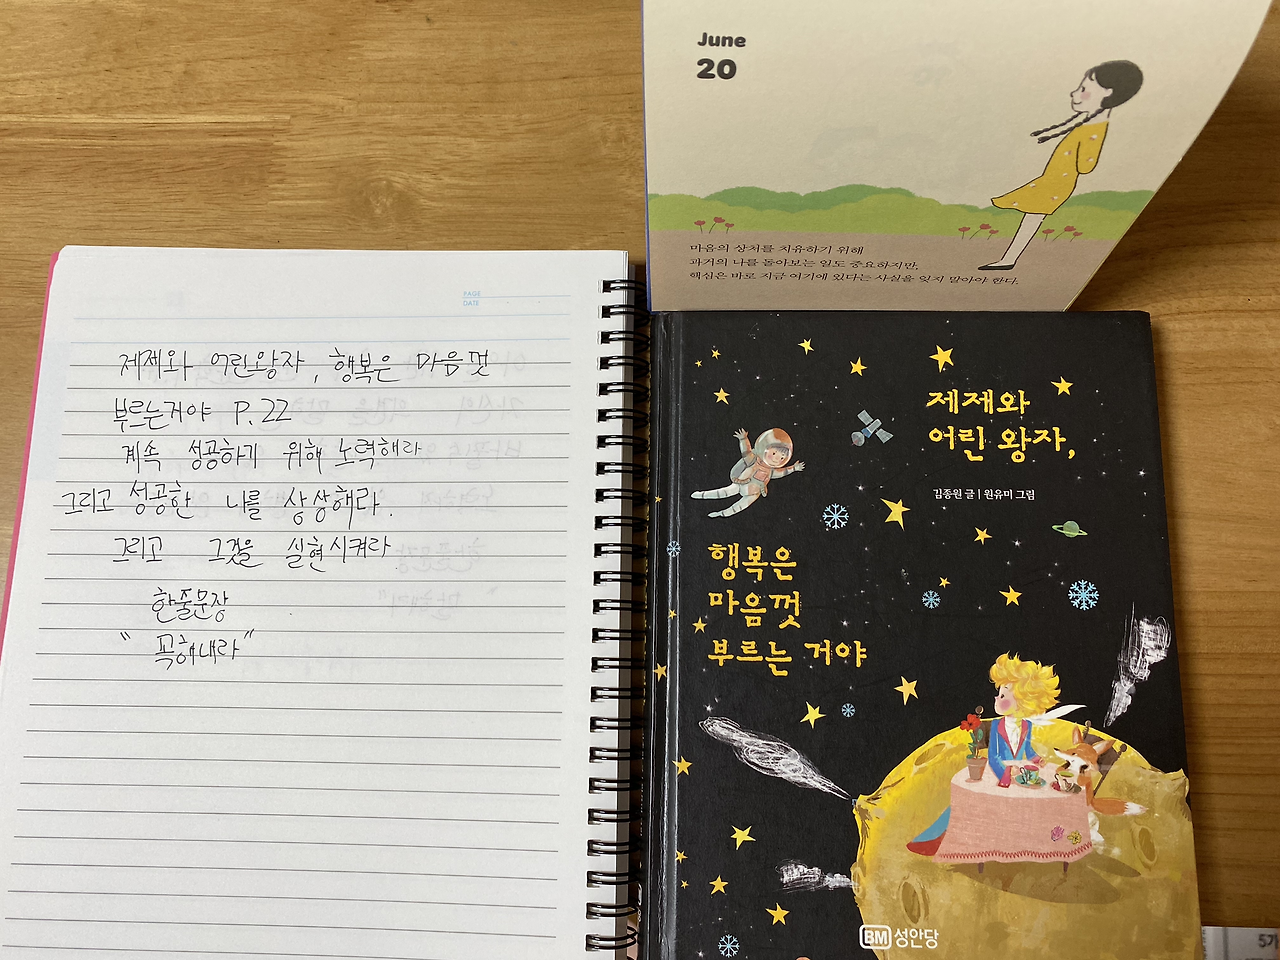 June
20
마음의 상처를 치유하기 위해
과거의 나를 돌아보는 일도 중요하지만,
핵심은 바로 지금 여기에 있다는 사실을 잊지 말아야 한다.
PAGE
DATE
제제와 어린왕자, 행복은 마음껏
부르는거야 P.22
계속 성공하기 위해 노력해라
그리고 성공한 나를 상상해라.
그리고 그것을 실현시켜라
한줄문장
"꼭해내라"
제제와
어린 왕자,
김종원 글 | 원유미 그림
행복은
마음껏
부르는 거야
BM 성안당